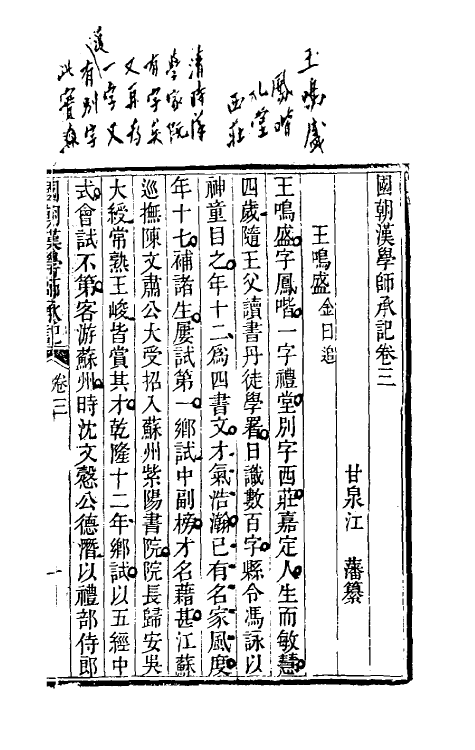 王鳴盛
鳳喈
礼堂
西莊
清時漢
學家既
有字矣
又再有
一字又
有別字
此實
國朝漢學師承記卷三
甘泉江藩纂
王鳴盛金曰追
王鳴盛字鳳喈一字禮堂別字西莊嘉定人生而敏慧
四歲隨王父讀書丹徒學署日識數百字縣令馮詠以
神童目之年十二爲四書文才氣浩瀚已有名家風度
年十七補諸生屢試第一鄉試中副榜才名藉甚江蘇
巡撫陳文肅公大受招入蘇州紫陽書院院長歸安吳
大綬常熟王峻皆賞其才乾隆十二年鄉試以五經中
式會試不第客游蘇州時沈文慤公德潛以禮部侍郎
國朝漢學師承記 卷三 一